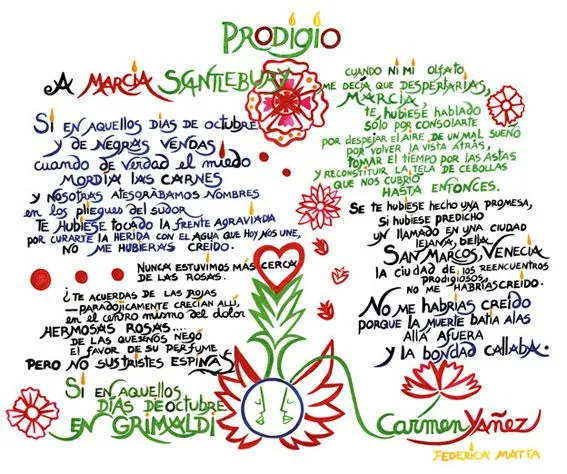 PRODIGIO
A MARCIA SCANTLEBURY
SI EN AQUELLOS DÍAS DE OCTUBRE
Y DE NEGRAS VENDAS
cuando de verdad el miedo
MORDÍA LAS CARNES
Y NOSOTRAS ATESORÁBAMOS NOMBRES
en los pliegues del sudor
TE HUBIESE TOCADO LA FRENTE AGRAVIADA
POR CURARTE LA HERIDA CON EL AGUA QUE HOY NOS UNE,
NO ME HUBIERAS CREÍDO.
NUNCA ESTUVIMOS MÁS CERCA
DE LAS ROSAS.
¿TE ACUERDAS DE LAS ROJAS
—PARADÓJICAMENTE CRECÍAN ALLÍ,
en el centro mismo del dolor
HERMOSAS ROSAS....
DE LAS QUE SE NOS NEGÓ
EL FAVOR DE SU PERFUME
PERO NO SUS TRISTES ESPINAS
SI EN AQUELLOS
DÍAS DE OCTUBRE
EN GRIMALDI
CUANDO NI MI OLFATO
ME DECÍA QUE DESPERTARÍAS,
MARCIA,
te HUBIESE HABLADO
SOLO POR CONSOLARTE
POR DESPEJAR EL AIRE DE UN MAL SUEÑO
POR VOLVER LA VISTA ATRÁS,
TOMAR EL TIEMPO POR LAS ASTAS
Y RECONSTITUIR LA TELA DE CEBOLLAS
QUE NOS CUBRIÓ
HASTA ENTONCES.
SE TE HUBIESE HECHO UNA PROMESA,
SI HUBIESE PREDICHO
UN LLAMADO EN UNA CIUDAD
LEJANA, BELLA
SAN MARCOS, VENECIA
LA CIUDAD DE LOS REENCUENTROS
PRODIGIOSOS,
NO ME HABRÍAS CREÍDO.
NO ME HABRÍAS CREÍDO
PORQUE LA MUERTE BATÍA ALAS
ALLÁ AFUERA
Y LA BONDAD CALLABA.
Cármen Yáñez
FEDERICA MATTA